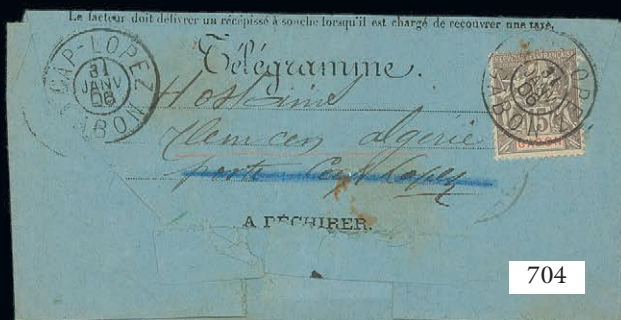 Le facteur doit délivrer un récépissé à souche lorsqu'il est chargé de recouvrer une taxe.
CAP-LOPEZ
31
JANV
08
GABON
Télégramme.
15
GABON
Tlemcen algérie
A DÉCHIRER.
704